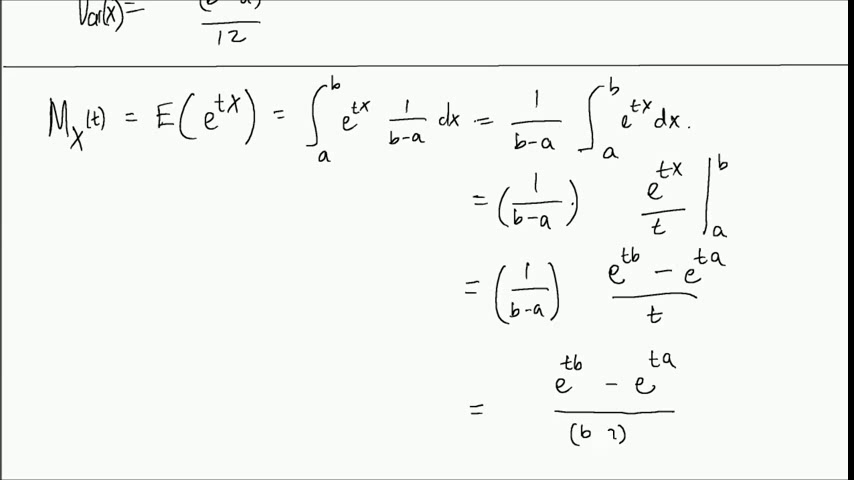 Var(x) = 12
M_X(t) = E(e^{tX}) = ∫_a^b e^{tx} 1/(b-a) dx = 1/(b-a) ∫_a^b e^{tx} dx.
= (1/(b-a)) e^{tx}/t |_a^b
= (1/(b-a)) (e^{tb} - e^{ta})/t
= (e^{tb} - e^{ta})/(b